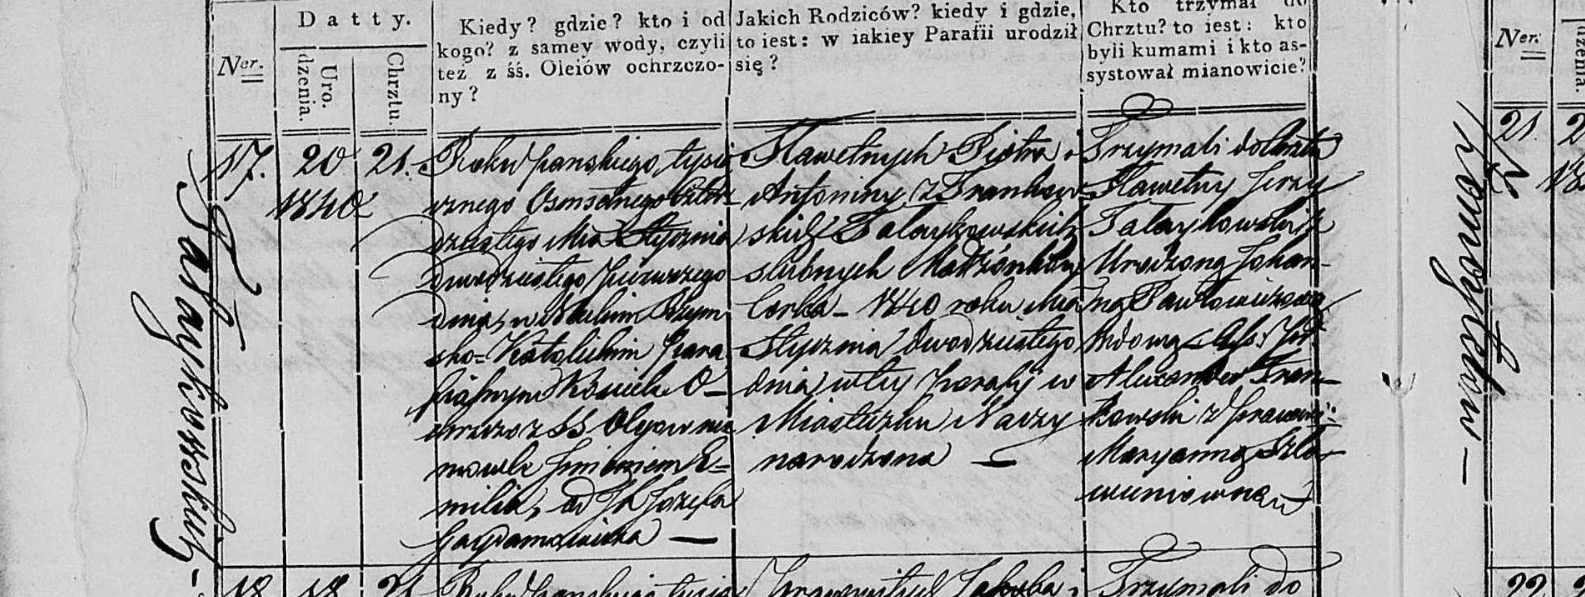 Ner.
Datty.
Uro.
dzenia.
Chrztu.
Kiedy? gdzie? kto i od
kogo? z samey wody, czyli
też z śś. Oleiów ochrzczo-
ny?
Jakich Rodziców? kiedy i gdzie,
to iest: w iakiey Parafii urodził
się?
Kto trzymał do
Chrztu? to iest: kto
byli kumami i kto as-
systował mianowicie?
17.
20
1840
21.
Roku Pańskiego, tysią
cznego Osmsetnego Czter-
dziestego Mca Stycznia
Dwudziestego pierwszego
dnia, w Rzym
sko-Katolickim Para
fialnym Kościele O-
chrzczo z SS Olejow nie
mowle Imieniem E=
milia, od Jk Józefa
Gaydamowicza —
Sławetnych Piotra i
Antoniny z Frankow=
skich Tatarykowskich
ślubnych Małżonkow
Corka - 1840 roku Mca
Stycznia dwudziestego
dnia w tey parafij w
Miasteczku Naczy
narodzona —
Trzymali do Chrztu
Sławetny Jerzy
Tatarykowski z
Urodzoną Johan-
ną Pawłowiczową
Wdową. Ass:
Alexander Fran-
kowski z Panną
Maryanną
Tatarykowskich -
18
18
21
Roku Pańskiego tysią
Pracowitych Jakuba i
Trzymali do
Ner.
dzenia.
21.
22